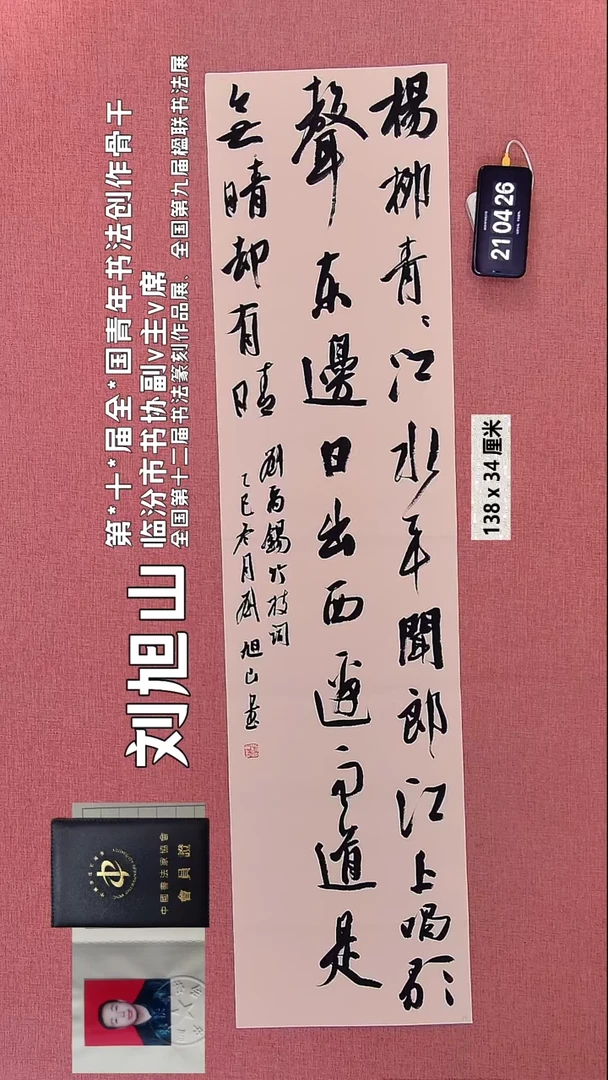 楊柳青〻江水平聞郎江上唱歌
聲東邊日出西邊雨道是
無晴却有晴
劉禹錫竹枝詞
乙巳冬月劉旭山書
刘旭山
第*十*届全*国青年书法创作骨干
临汾市书协副v主v席
全国第十二届书法篆刻作品展、全国第九届楹联书法展
138 x 34 厘米
21 04 26
中國書法家協會
會員證